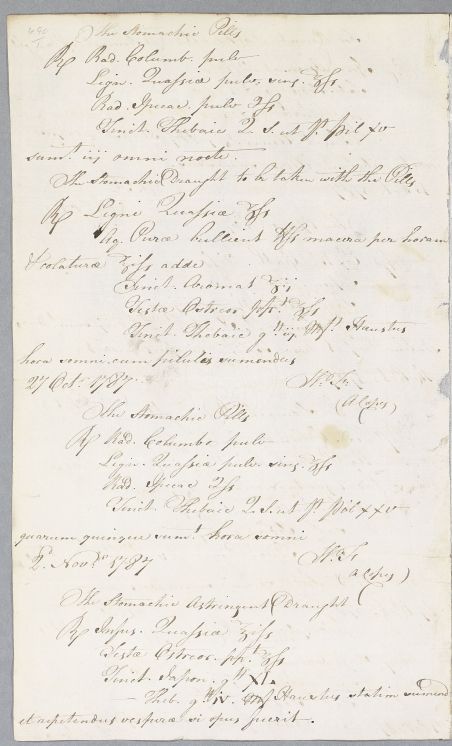 The Stomachic Pills
℞ Rad. Columb. pulv
Lign. Quassiæ pulv. sing. ʒſs
Rad. Ipecac pulv ℈ſs
Tinct. Thebaic Q. S. ut ft. Pil xv
sumt. iij omni nocte.
The Stomachic Draught to be taken with the Pills
℞ Ligni Quassiæ ʒſs
Aq. Puræ bullient ℔ſs macera per horam
& colaturæ ℥iſs adde
Tinct. Aromat ʒij
Testæ Ostreor. ppt. ʒſs
Tinct. Thebaic gtt iij ft. Haustus
hora somni cum pilulis sumendus
27 Octr. 1787
(A Copy)
The Stomachic Pills
℞ Rad. Columbo pulv
Lign. Quassiæ pulv. sing. ʒſs
Rad. Ipecac ℈ſs
Tinct. Thebaic Q. S. ut ft. Pil xxv
quarum quinque sumt. hora somni
2. Novr. 1787
(a Copy)
The Stomachic Astringent Draught
℞ Infus. Quassiæ ℥iſs
Testæ Ostreor. ppt. ʒſs
Tinct. Japon. gtt XL
Theb. gtt iv. Haustus statim sumend
et repetendus vesperæ si opus fuerit.